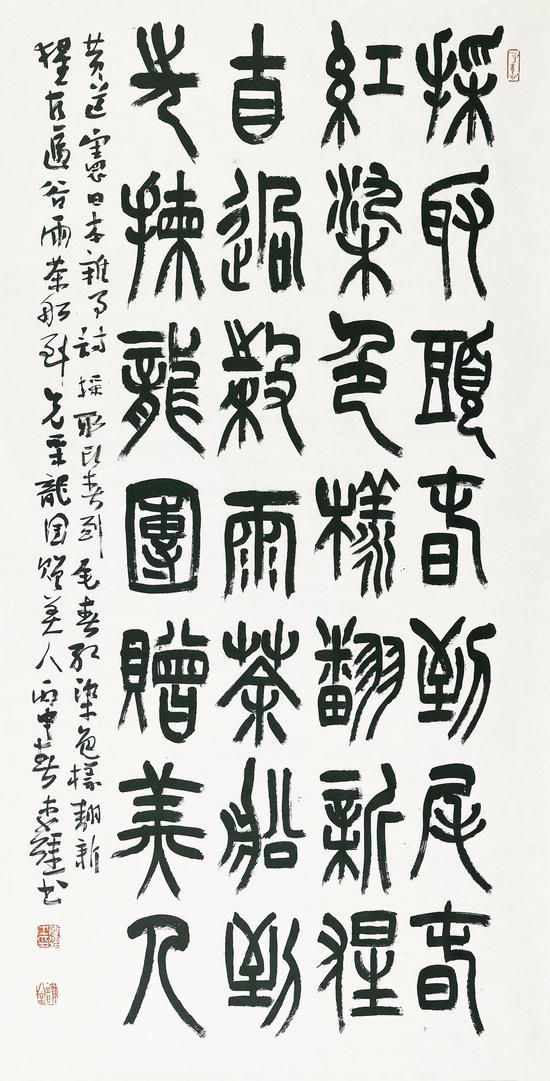 採取頭春到尾春
紅染色樣翻新猩
直過穀雨茶船到
先揀龍團贈美人
黄遵憲日本雜事詩 採取頭春到尾春紅染色樣翻新
猩直過谷雨茶船到先龍团贈美人丙申春書